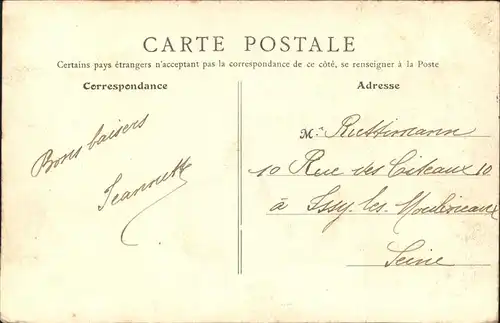 CARTE POSTALE
Certains pays étrangers n'acceptant pas la correspondance de ce côté, se renseigner à la Poste
Correspondance
Adresse
Bons baisers
Jeannette
Mr. Ruttimann
10 Rue des Citeaux 10
à Issy-les-Moulineaux
Seine